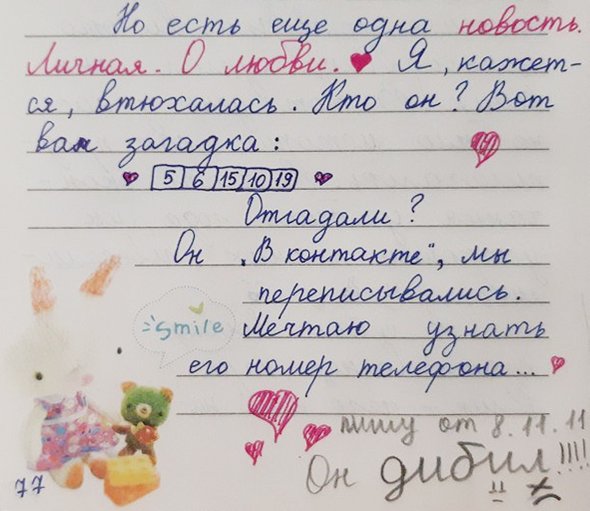 Но есть еще одна новость.
Личная. О любви. Я, кажет-
ся, втюхалась. Кто он? Вот
вам загадка:
5 6 15 10 19
Отгадали?
Он „В контакте", мы
переписывались.
Smile
Мечтаю узнать
его номер телефона...
пишу от 8.11.11
Он дибил!!!!
77